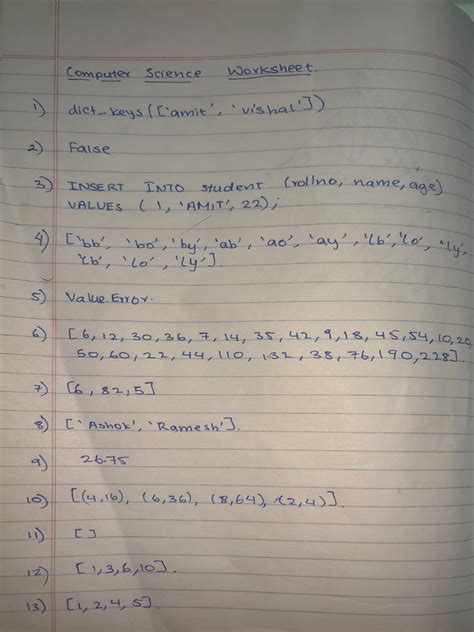 Computer Science Worksheet
1) dict_keys(['amit', 'vishal'])
2) False
3) INSERT INTO student (rollno, name, age)
VALUES (1, 'AMIT', 22);
4) ['bb', 'bo', 'by', 'ab', 'ao', 'ay', 'lb', 'lo', 'ly',
'lb', 'lo', 'ly'].
5) Value.Error.
6) [6, 12, 30, 36, 7, 14, 35, 42, 9, 18, 45, 54, 10, 20
50, 60, 22, 44, 110, 132, 38, 76, 190, 228].
7) [6, 82, 5]
8) ['Ashok', 'Ramesh'].
9) 26.75
10) [(4,16), (6,36), (8,64), (2,4)].
11) []
12) [1,3,6,10].
13) [1,2,4,5].